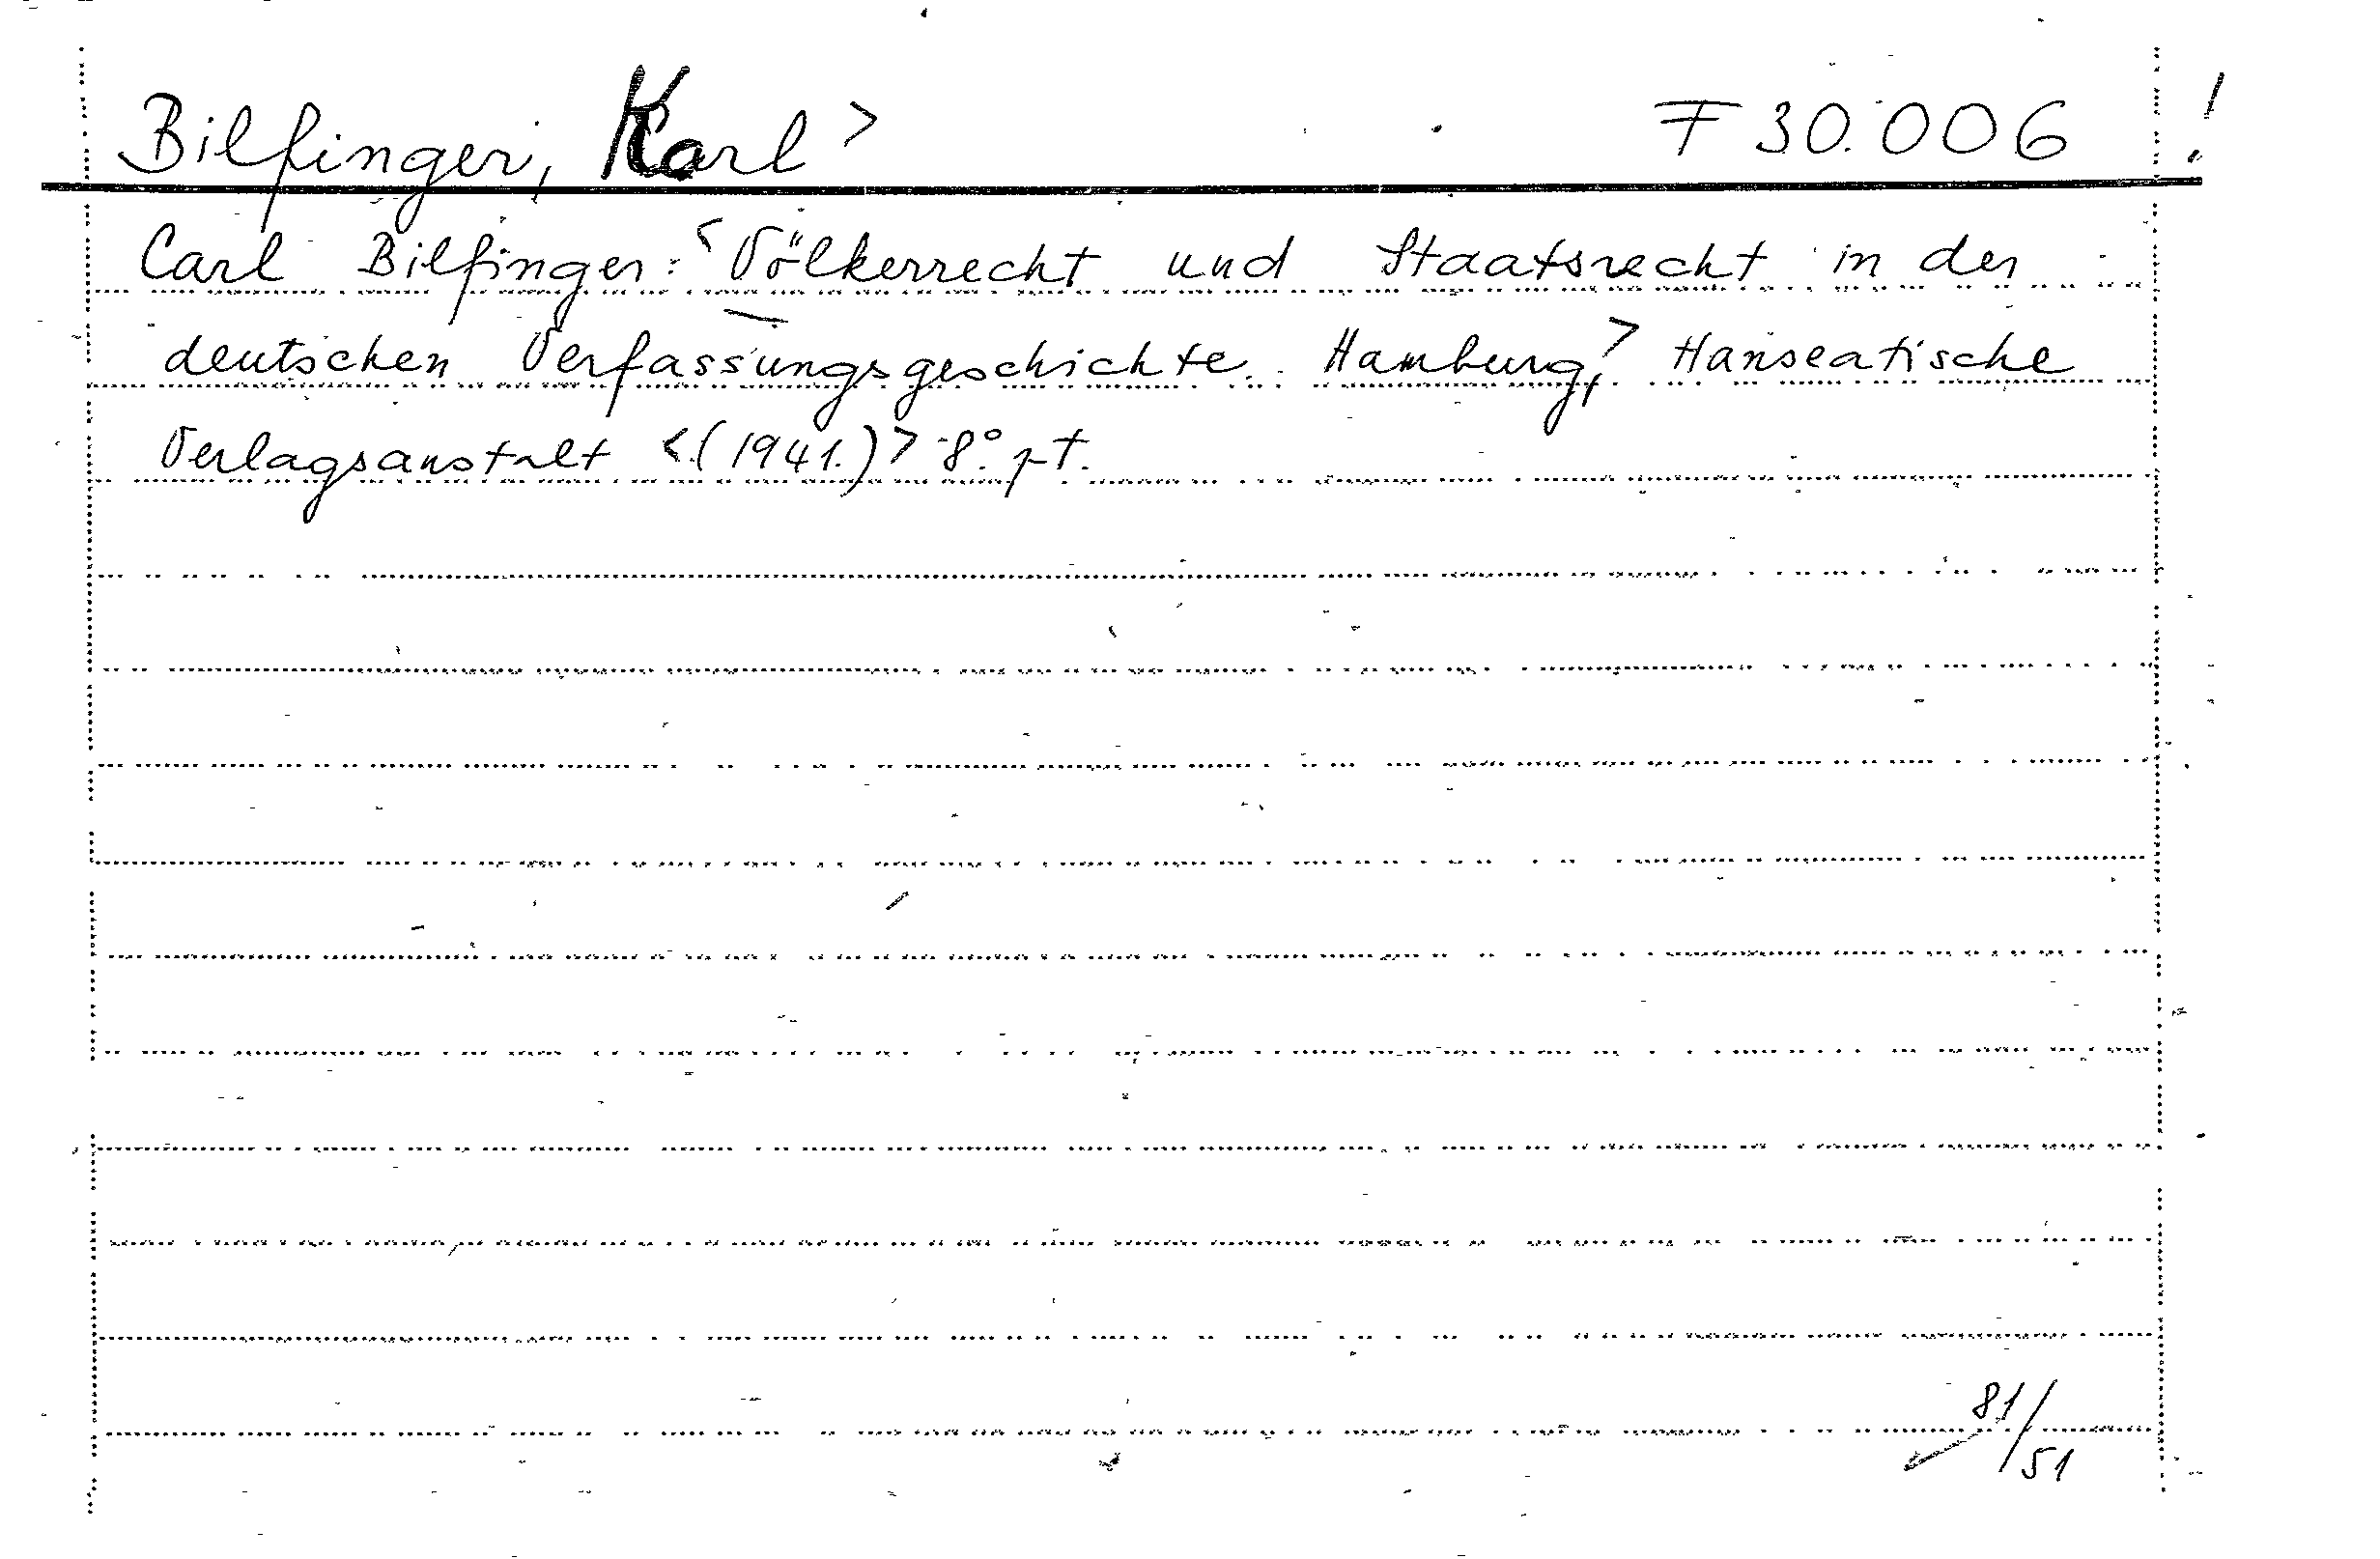 Bilfinger, Karl > F 30.006 !
Carl Bilfinger: < Völkerrecht und Staatsrecht in der
deutschen Verfassungsgeschichte. Hamburg, > Hanseatische
Verlagsanstalt <(1941.)> 8°.
81/51